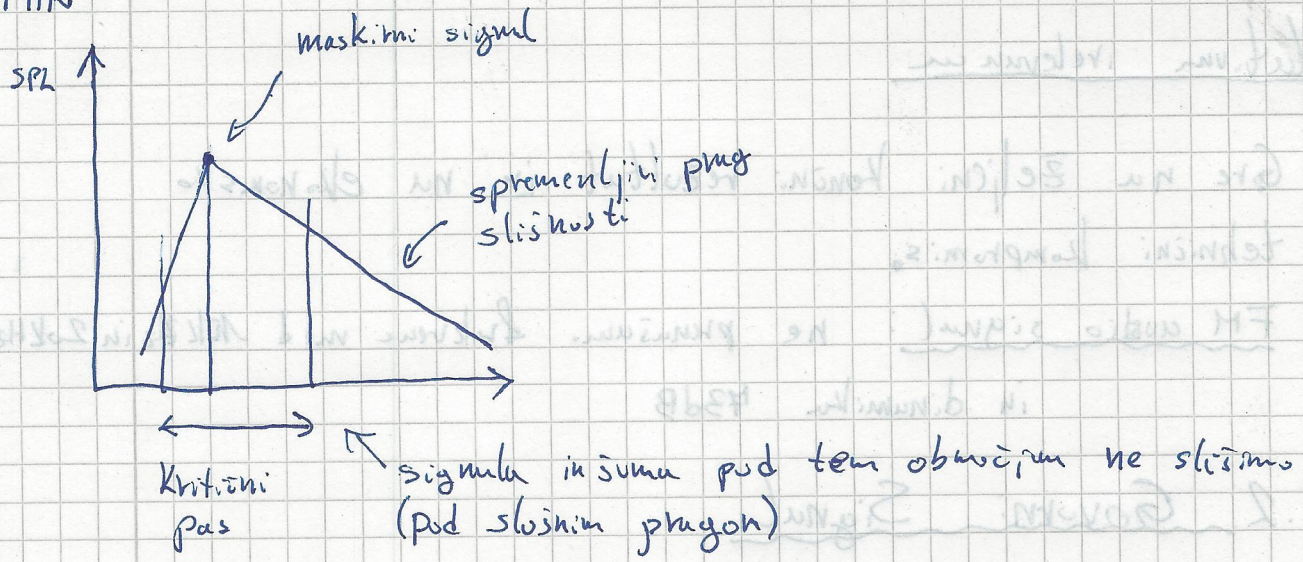 maskirni signal
SPL
spremenljivi prag
slišnosti
Kritični
pas
signala in šuma pod tem območjem ne slišimo
(pod slušnim pragom)